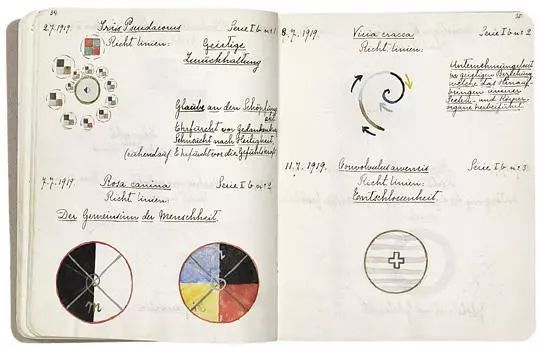 34
2.7.1919. Iris Pseudacorus Serie I b nº 1
Richtlinien: Geistige
Zurückhaltung
Glaube an den Schöpfung
Ehrfurcht vor Gedanken
Sehnsucht nach Heiligkeit
Ehrfurcht vor die Gefühlskraft
7.7.1919. Rosa canina Serie I b nº 2
Richtlinien:
Der Gemeinsinn der Menschheit.
35
8.7.1919. Vicia cracca Serie I b nº 2
Richtlinien:
Unternehmungslust
in geistigen Beziehung
welche das
unserer
Seelen- und Körper
organe herbeiführt.
11.7.1919. Convolvulus arvensis Serie I b nº 3
Richtlinien:
Entschlossenheit.